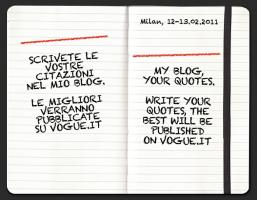 SCRIVETE LE
VOSTRE
CITAZIONI
NEL MIO BLOG.
LE MIGLIORI
VERRANNO
PUBBLICATE
SU VOGUE.IT
Milan, 12-13.02.2011
MY BLOG,
YOUR QUOTES.
WRITE YOUR
QUOTES, THE
BEST WILL BE
PUBLISHED
ON VOGUE.IT